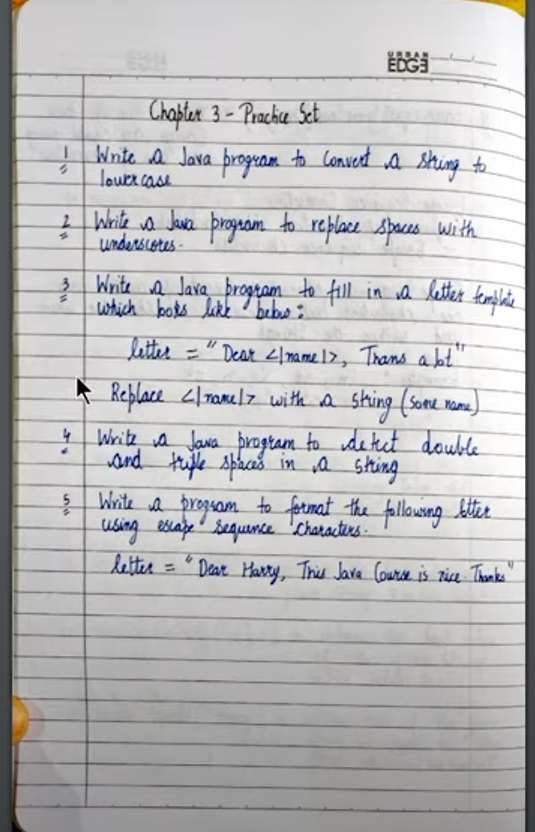 URBAN
EDGE
Chapter 3 - Practice Set
1 Write a Java program to Convert a string to
lowercase
2 Write a Java program to replace spaces with
underscores.
3 Write a Java program to fill in a letter template
which looks like below :
letter = "Dear <|name|>, Thanks a lot"
Replace <|name|> with a string (some name)
4 Write a Java program to detect double
and triple spaces in a string
5 Write a program to format the following letter
using escape sequence characters.
letter = "Dear Harry, This Java Course is nice. Thanks"